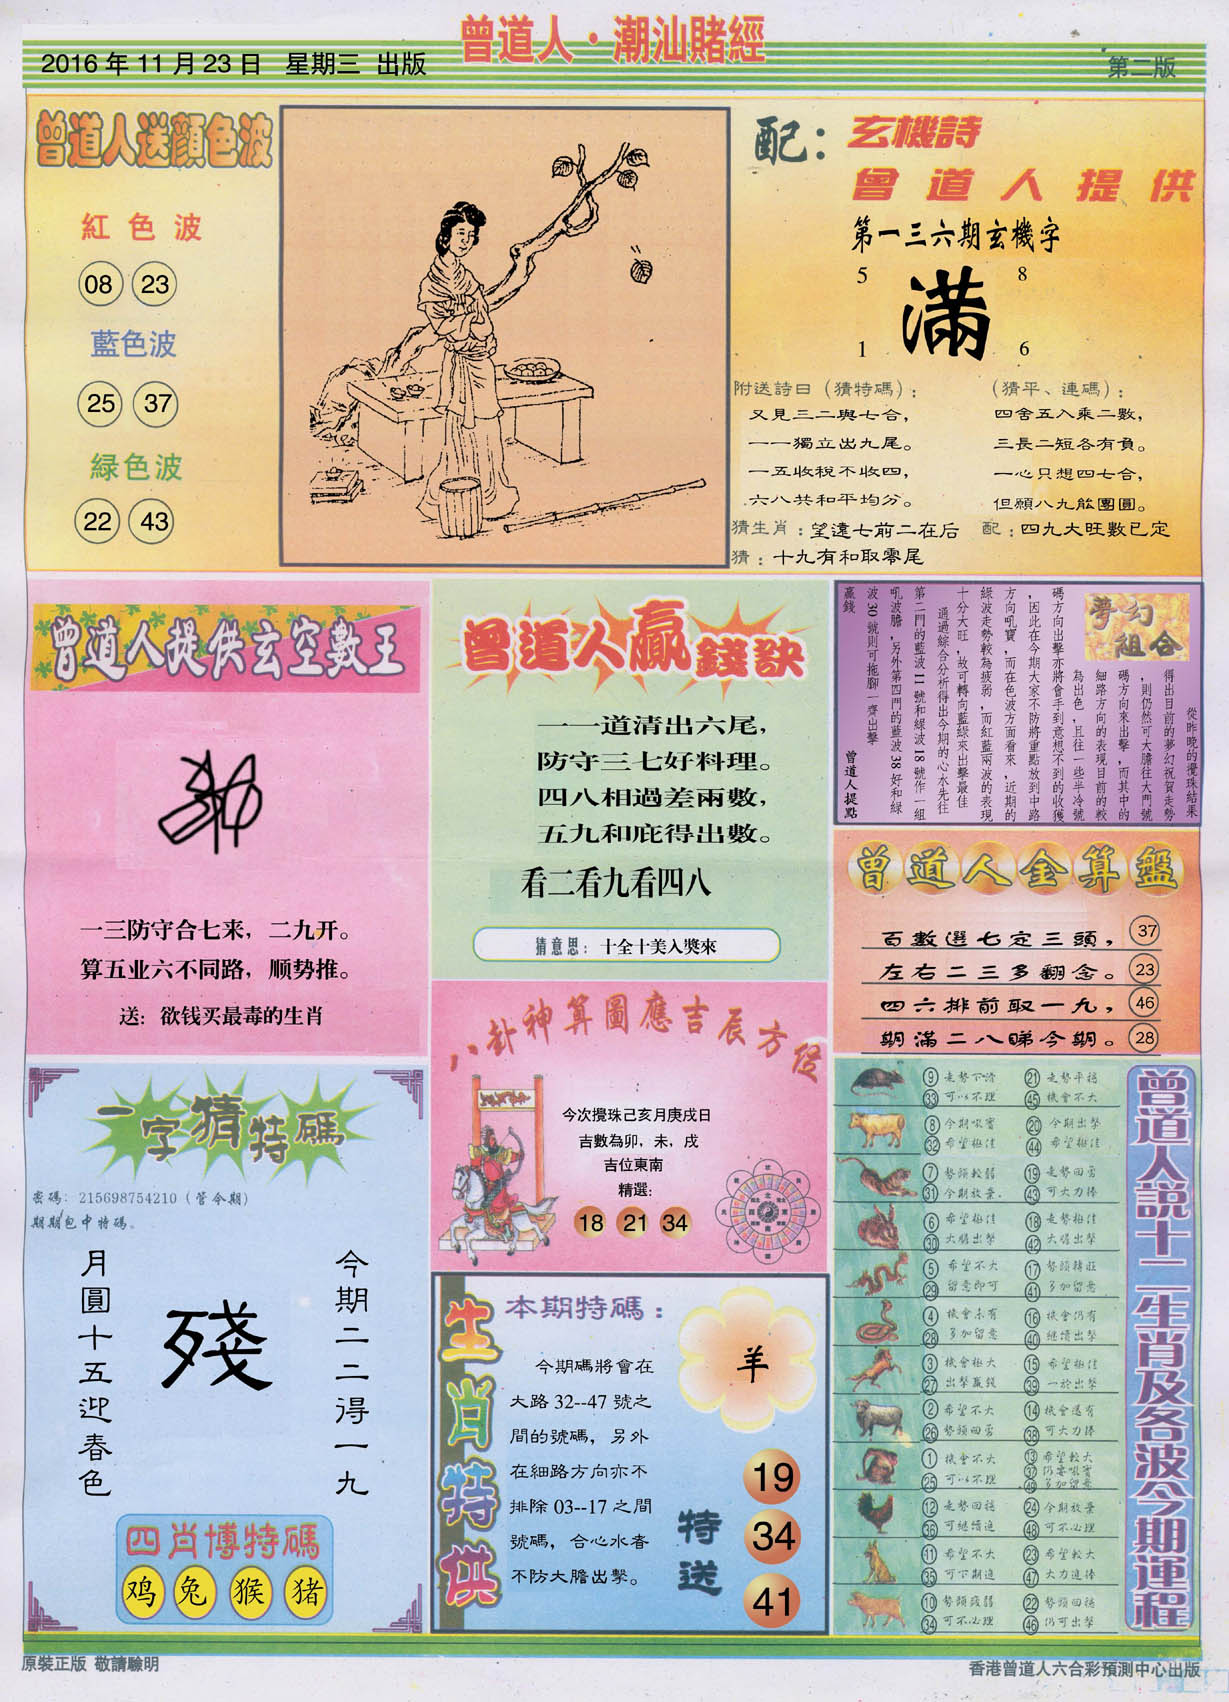 曾道人·潮汕賭經
2016 年 11 月 23 日 星期三 出版
第二版
曾道人送顏色波
紅色波
08 23
藍色波
25 37
緑色波
22 43
配：玄機詩
曾道人提供
第一三六期玄機字
5 8
滿
1 6
附送詩曰（猜特碼）：
又見三二與七合，
一一獨立出九尾。
一五收稅不收四，
六八共和平均分。
（猜平、連碼）：
四舍五入乘二數，
三長二短各有負。
一心只想四七合，
但願八九能團圓。
猜生肖：望遠七前二在后
配：四九大旺數已定
猜：十九有和取零尾
曾道人提供玄空數王
一三防守合七来，二九开。
算五业六不同路，顺势推。
送：欲钱买最毒的生肖
曾道人贏錢訣
一一道清出六尾，
防守三七好料理。
四八相過差兩數，
五九和庇得出數。
看二看九看四八
猜意思：十全十美入獎來
夢幻組合
從昨晚的攪珠結果
得出目前的夢幻祝賀走勢
，則仍然可大膽往大門號
碼方向來出擊，而其中的
細路方向的表現目前的較
為出色，且往一些半冷號
碼方向出擊亦將會手到意想不到的收獲
，因此在今期大家不防將重點放到中路
方向吼寶，而在色波方面看來，近期的
綠波走勢較為疲弱，而紅藍兩波的表現
十分大旺，故可轉向藍綠來出擊最佳
通過綜合分析得出今期的心水先往
第二門的藍波 11 號和綠波 18 號作一組
吼波膽，另外第四門的藍波 38 好和綠
波 30 號則可拖腳一齊出擊
贏錢
曾道人提點
曾道人金算盤
百數選七定三頭， 37
左右二三多翻念。 23
四六排前取一九， 46
期滿二八睇今期。 28
八卦神算圖應吉辰方位
今次攪珠己亥月庚戌日
吉數為卯，未，戌
吉位東南
精選：
18 21 34
一字猜特碼
密碼：215698754210（管今期）
期期包中特碼。
今期二二得一九
殘
月圓十五迎春色
四肖博特碼
鸡 兔 猴 猪
生肖特供
本期特碼：
今期碼將會在
大路 32--47 號之
間的號碼，另外
在細路方向亦不
排除 03--17 之間
號碼，合心水者
不防大膽出擊。
羊
特送
19
34
41
曾道人說十二生肖及各波今期運程
⑨ 走勢下滑 ㉑ 走勢平穩
㉝ 可以不理 ㊺ 機會不大
⑧ 今期吼實 ⑳ 今期出擊
㉜ 希望極佳 ㊹ 希望極佳
⑦ 勢頭較弱 ⑲ 走勢回勇
㉛ 今期放棄 ㊸ 可大力捧
⑥ 希望極佳 ⑱ 走勢極佳
㉚ 大膽出擊 ㊷ 大膽出擊
⑤ 希望不大 ⑰ 勢頭轉旺
㉙ 留意即可 ㊶ 多加留意
④ 機會未有 ⑯ 機會仍有
㉘ 多加留意 ㊵ 繼續出擊
③ 機會極大 ⑮ 希望極佳
㉗ 出擊贏錢 ㊴ 一於出擊
② 希望不大 ⑭ 機會還有
㉖ 勢頭回勇 ㊳ 可大力捧
① 機會不大 ⑬ 希望較大
㉕ 可以不理 ㊲ 仍要吼實
㊾ 多加留意
⑫ 走勢回穩 ㉔ 今期放棄
㊱ 可繼續追 ㊽ 可不必理
⑪ 希望不大 ㉓ 希望較大
㉟ 可下期追 ㊼ 大力追捧
⑩ 勢頭疲弱 ㉒ 勢頭回穩
㉞ 可不必理 ㊻ 仍可出擊
原裝正版 敬請驗明
香港曾道人六合彩預測中心出版